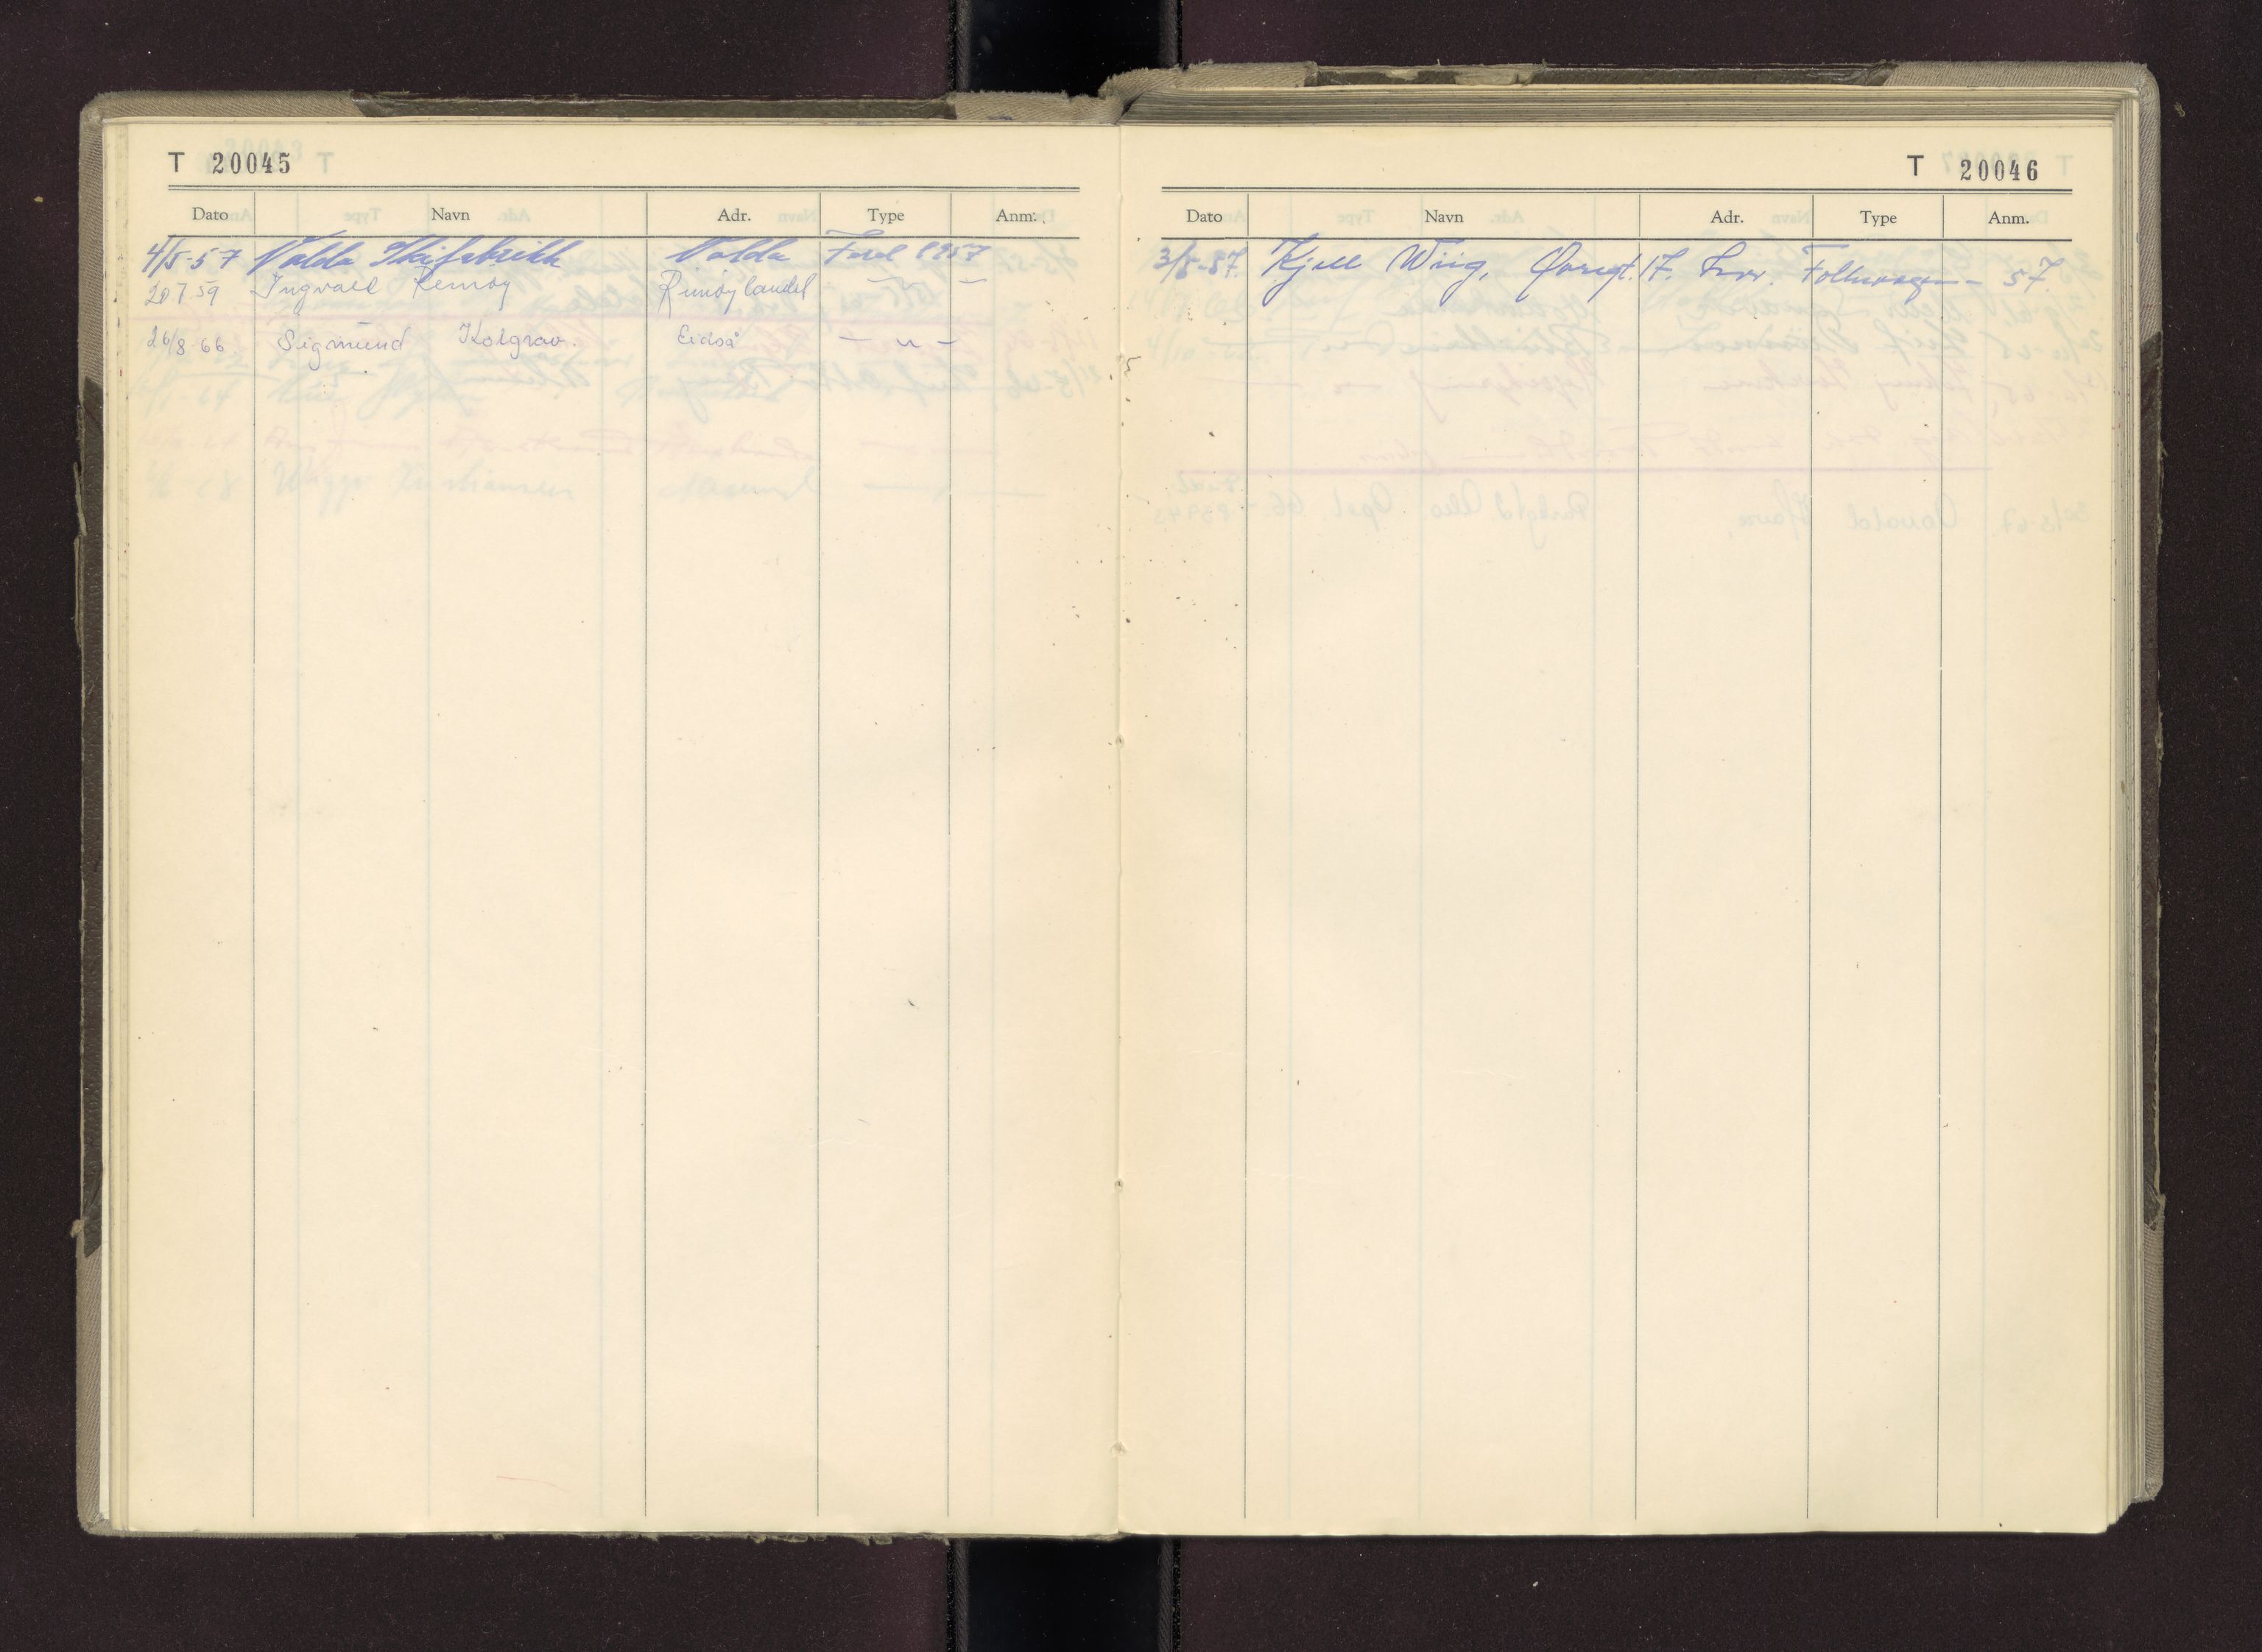 T 20045
Dato Navn Adr. Type Anm.
4/5-57 Volda Skifabrikk Volda Ford 1957
20 7 59 Ingvald Remøy Rimøylandet — " —
26/8-66 Sigmund Kolgrav. Eidså — " —
T 20046
Dato Navn Adr. Type Anm.
3/5-57. Kjell Wiig, 17. Folkevogn - 57.